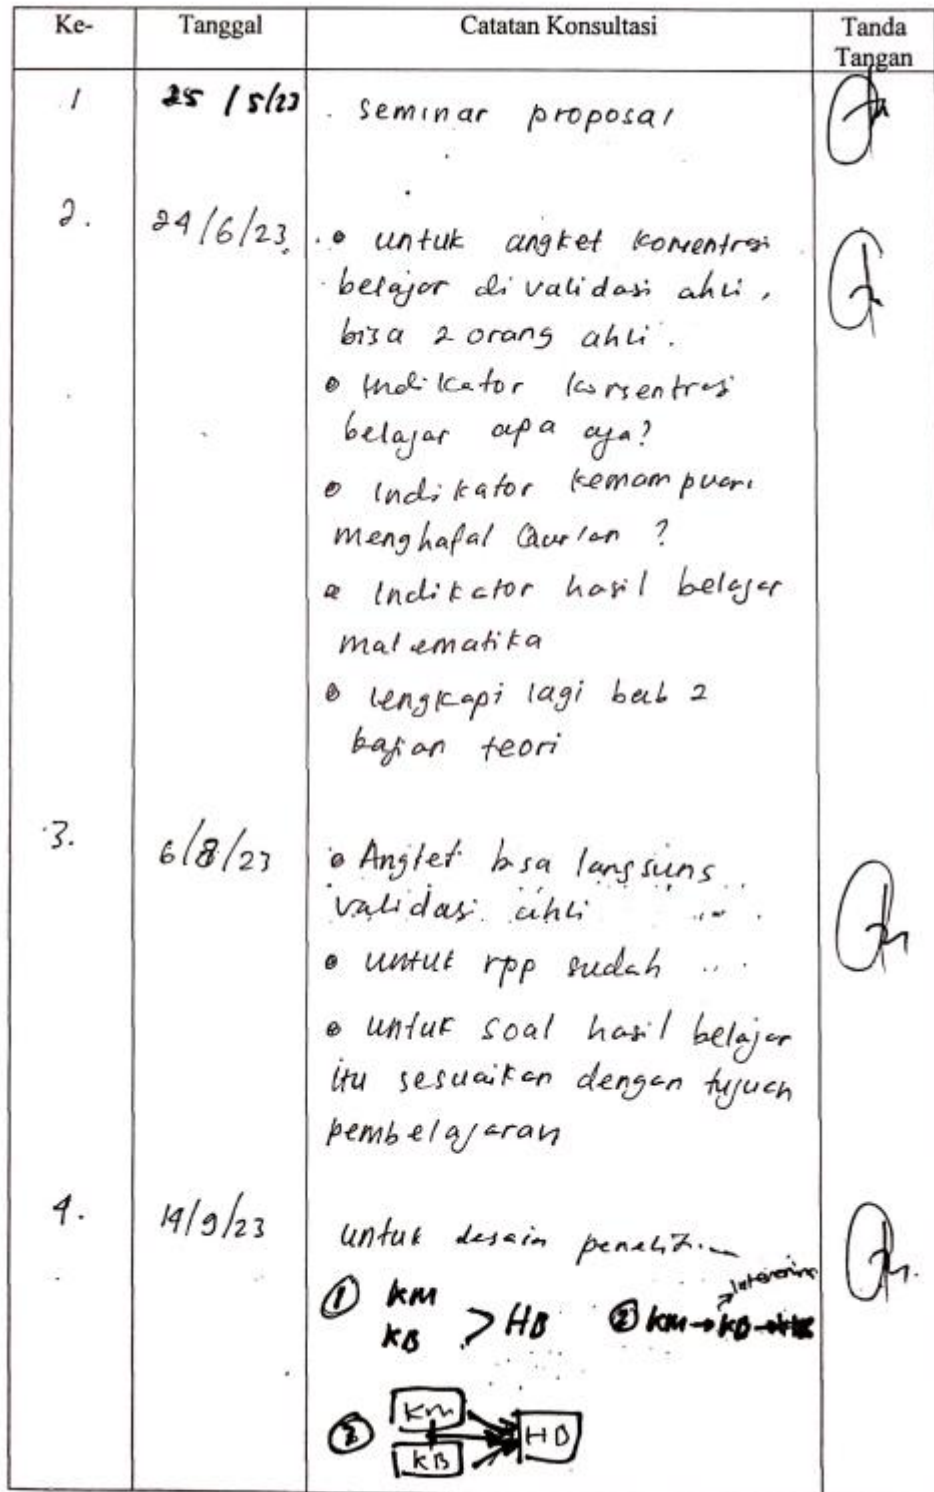 Ke- Tanggal Catatan Konsultasi Tanda
Tangan
1 25 / 5/23 seminar proposal
2. 24/6/23 untuk angket konsentrasi
belajar di validasi ahli,
bisa 2 orang ahli.
Indikator konsentrasi
belajar apa aja?
Indikator kemampuan
menghafal Qur'an ?
Indikator hasil belajar
matematika
lengkapi lagi bab 2
bagian teori
3. 6/8/23 Angket bisa langsung
validasi ahli
untuk rpp sudah
untuk soal hasil belajar
itu sesuaikan dengan tujuan
pembelajaran
4. 14/9/23 untuk desain penelitian
① KM
KB > HB
② KM → KB →
③ KM
KB
HB